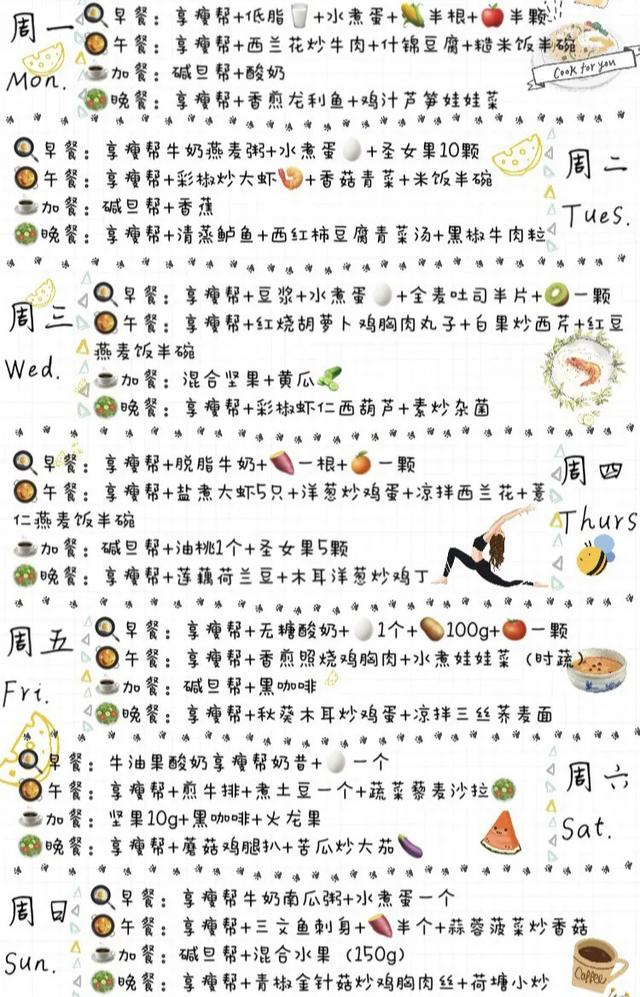 周一
Mon.
早餐：享瘦帮+低脂🥛+水煮蛋+🌽半根+🍎半颗
午餐：享瘦帮+西兰花炒牛肉+什锦豆腐+糙米饭半碗
加餐：碱旦帮+酸奶
晚餐：享瘦帮+香煎龙利鱼+鸡汁芦笋娃娃菜
Cook for you
周二
Tues.
早餐：享瘦帮牛奶燕麦粥+水煮蛋🥚+圣女果10颗
午餐：享瘦帮+彩椒炒大虾🦐+香菇青菜+米饭半碗
加餐：碱旦帮+香蕉
晚餐：享瘦帮+清蒸鲈鱼+西红柿豆腐青菜汤+黑椒牛肉粒
周三
Wed.
早餐：享瘦帮+豆浆+水煮蛋🥚+全麦吐司半片+🥝一颗
午餐：享瘦帮+红烧胡萝卜鸡胸肉丸子+白果炒西芹+红豆
燕麦饭半碗
加餐：混合坚果+黄瓜🥒
晚餐：享瘦帮+彩椒虾仁西葫芦+素炒杂菌
周四
Thurs
早餐：享瘦帮+脱脂牛奶+🍠一根+🍊一颗
午餐：享瘦帮+盐煮大虾5只+洋葱炒鸡蛋+凉拌西兰花+薏
仁燕麦饭半碗
加餐：碱旦帮+油桃1个+圣女果5颗
晚餐：享瘦帮+莲藕荷兰豆+木耳洋葱炒鸡丁
周五
Fri.
早餐：享瘦帮+无糖酸奶+🥚1个+🥔100g+🍅一颗
午餐：享瘦帮+香煎照烧鸡胸肉+水煮娃娃菜（时蔬）
加餐：碱旦帮+黑咖啡
晚餐：享瘦帮+秋葵木耳炒鸡蛋+凉拌三丝荞麦面
周六
Sat.
早餐：牛油果酸奶享瘦帮奶昔+🥚一个
午餐：享瘦帮+煎牛排+煮土豆一个+蔬菜藜麦沙拉🥗
加餐：坚果10g+黑咖啡+火龙果
晚餐：享瘦帮+蘑菇鸡腿扒+苦瓜炒大茄🍆
周日
Sun.
早餐：享瘦帮牛奶南瓜粥+水煮蛋一个
午餐：享瘦帮+三文鱼刺身+🍠半个+蒜蓉菠菜炒香菇
加餐：碱旦帮+混合水果（150g）
晚餐：享瘦帮+青椒金针菇炒鸡胸肉丝+荷塘小炒
Coffee